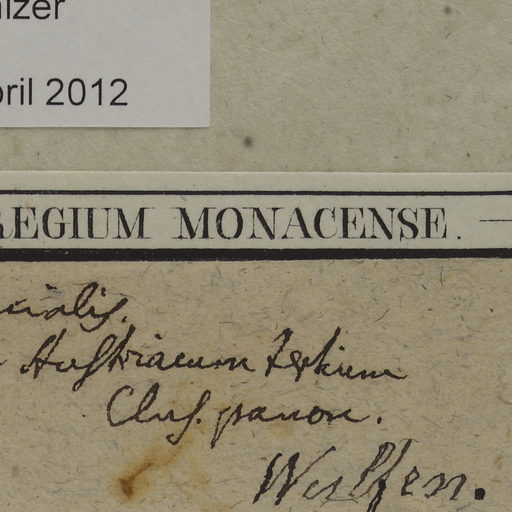 nizer
pril 2012
REGIUM MONACENSE.
Austriacum tertium
Clus. panon.
Wulfen.